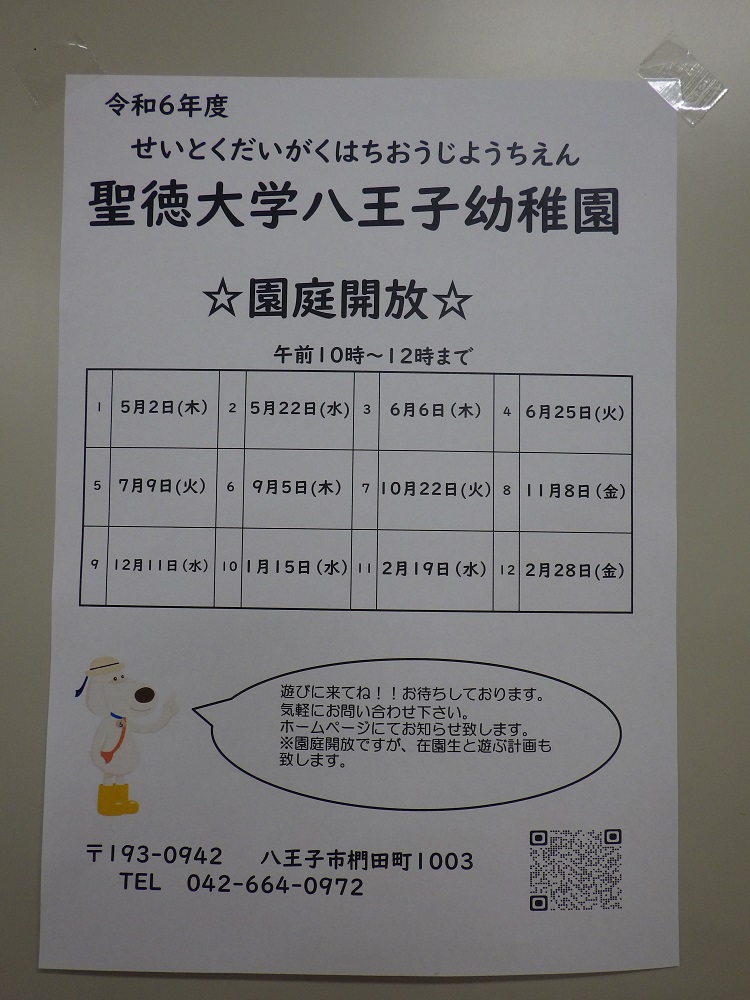 令和6年度
せいとくだいがくはちおうじようちえん
聖徳大学八王子幼稚園
☆園庭開放☆
午前10時～12時まで
1 5月2日(木) 2 5月22日(水) 3 6月6日(木) 4 6月25日(火)
5 7月9日(火) 6 9月5日(木) 7 10月22日(火) 8 11月8日(金)
9 12月11日(水) 10 1月15日(水) 11 2月19日(水) 12 2月28日(金)
遊びに来てね！！お待ちしております。
気軽にお問い合わせ下さい。
ホームページにてお知らせ致します。
※園庭開放ですが、在園生と遊ぶ計画も
致します。
〒193-0942 八王子市椚田町1003
TEL 042-664-0972